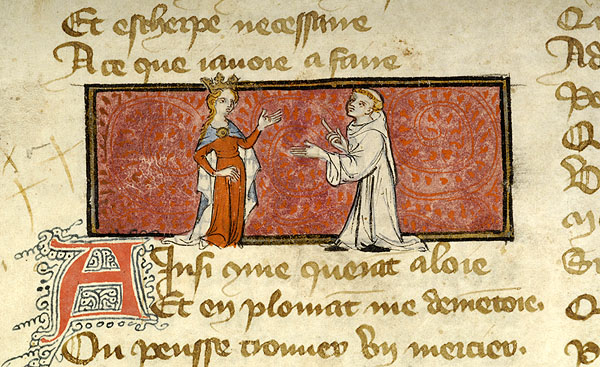 Et escherpe necessaire
A ce que iauoie a faire
Ainsi qme querāt aloie
Et en plorāt me demētoie.
Ou peusse trouuer vn mercier.
Qu
Ad
Po
Qu